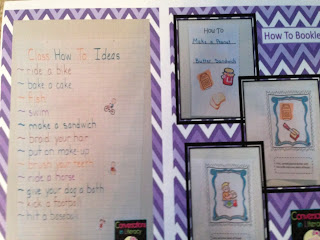 Class How To Ideas
~ ride a bike
~ bake a cake
~ fish
~ swim
~ make a sandwich
~ braid your hair
~ put on make-up
~ brush your teeth
~ ride a horse
~ give your dog a bath
~ kick a football
~ hit a baseball
Conversations
in Literacy
How To
Make a Peanut
Butter Sandwich
How To Bookle